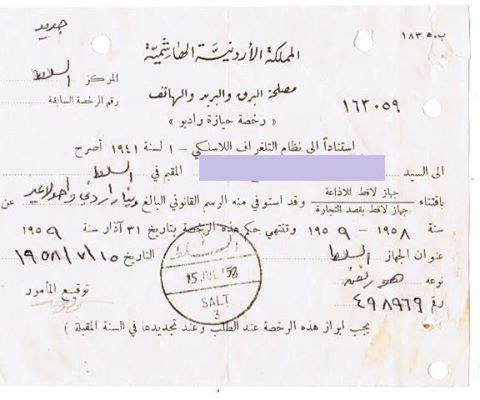 جديد
ب.ھ ١٨٣
المملكة الأردنية الهاشمية
المركز السلط
مصلحة البرق والبريد والهاتف
رقم الرخصة السابقة
١٦٣٠٥٩
« رخصة حيازة راديو »
استناداً الى نظام التلغراف اللاسلكي - ١ لسنة ١٩٤١ أصرح
الى السيد المقيم في السلط
باقتناء جهاز لاقط للاذاعة
جهاز لاقط بقصد التجارة
وقد استوفي منه الرسم القانوني البالغ دينار اردني واحد لا غير عن
سنة ١٩٥٨ - ١٩٥٩ وتنتهي حكم هذه الرخصة بتاريخ ٣١ آذار سنة ١٩٥٩
عنوان الجهاز السلط التاريخ ١٩٥٨/٧/١٥
نوعه
توقيع المأمور
رقم ٤٩٨٩٦٩
السلط
15 JUL 58
SALT
3
( يجب ابراز هذه الرخصة عند الطلب وعند تجديدها في السنة المقبلة )